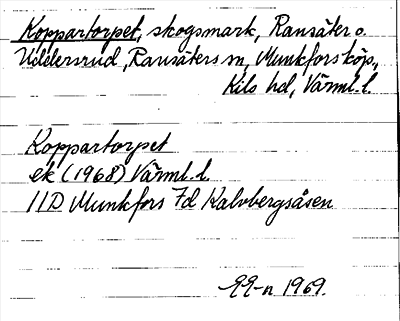 Koppartorpet, skogsmark, Ransäter o.
Uddersrud, Ransäters sn, Munkfors köp.,
Kils hd, Värml. l.
Koppartorpet
ek (1968) Värml. l.
11D Munkfors 7d Kalvbergsåsen
1969.